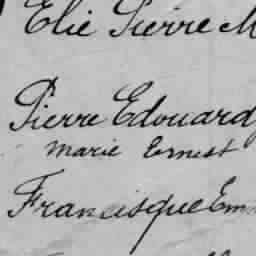 Elie Pierre M
Pierre Edouard
Marie Ernest
Francisque Em